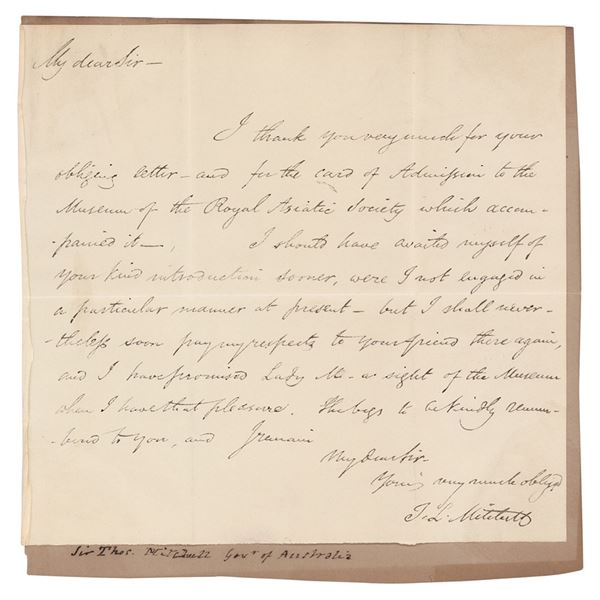 My dear Sir —
I thank you very much for your
obliging letter — and for the card of Admission to the
Museum of the Royal Asiatic Society which accom-
-panied it —, I should have availed myself of
your kind introduction sooner, were I not engaged in
a particular manner at present — but I shall never-
-theless soon pay my respects to your friend there again,
and I have promised Lady M— a sight of the Museum
when I have that pleasure. She begs to be kindly remem-
-bered to you, and I remain
My dear Sir
Yours very much obliged
T. L. Mitchell
Sir Thos. Mitchell Govr of Australia